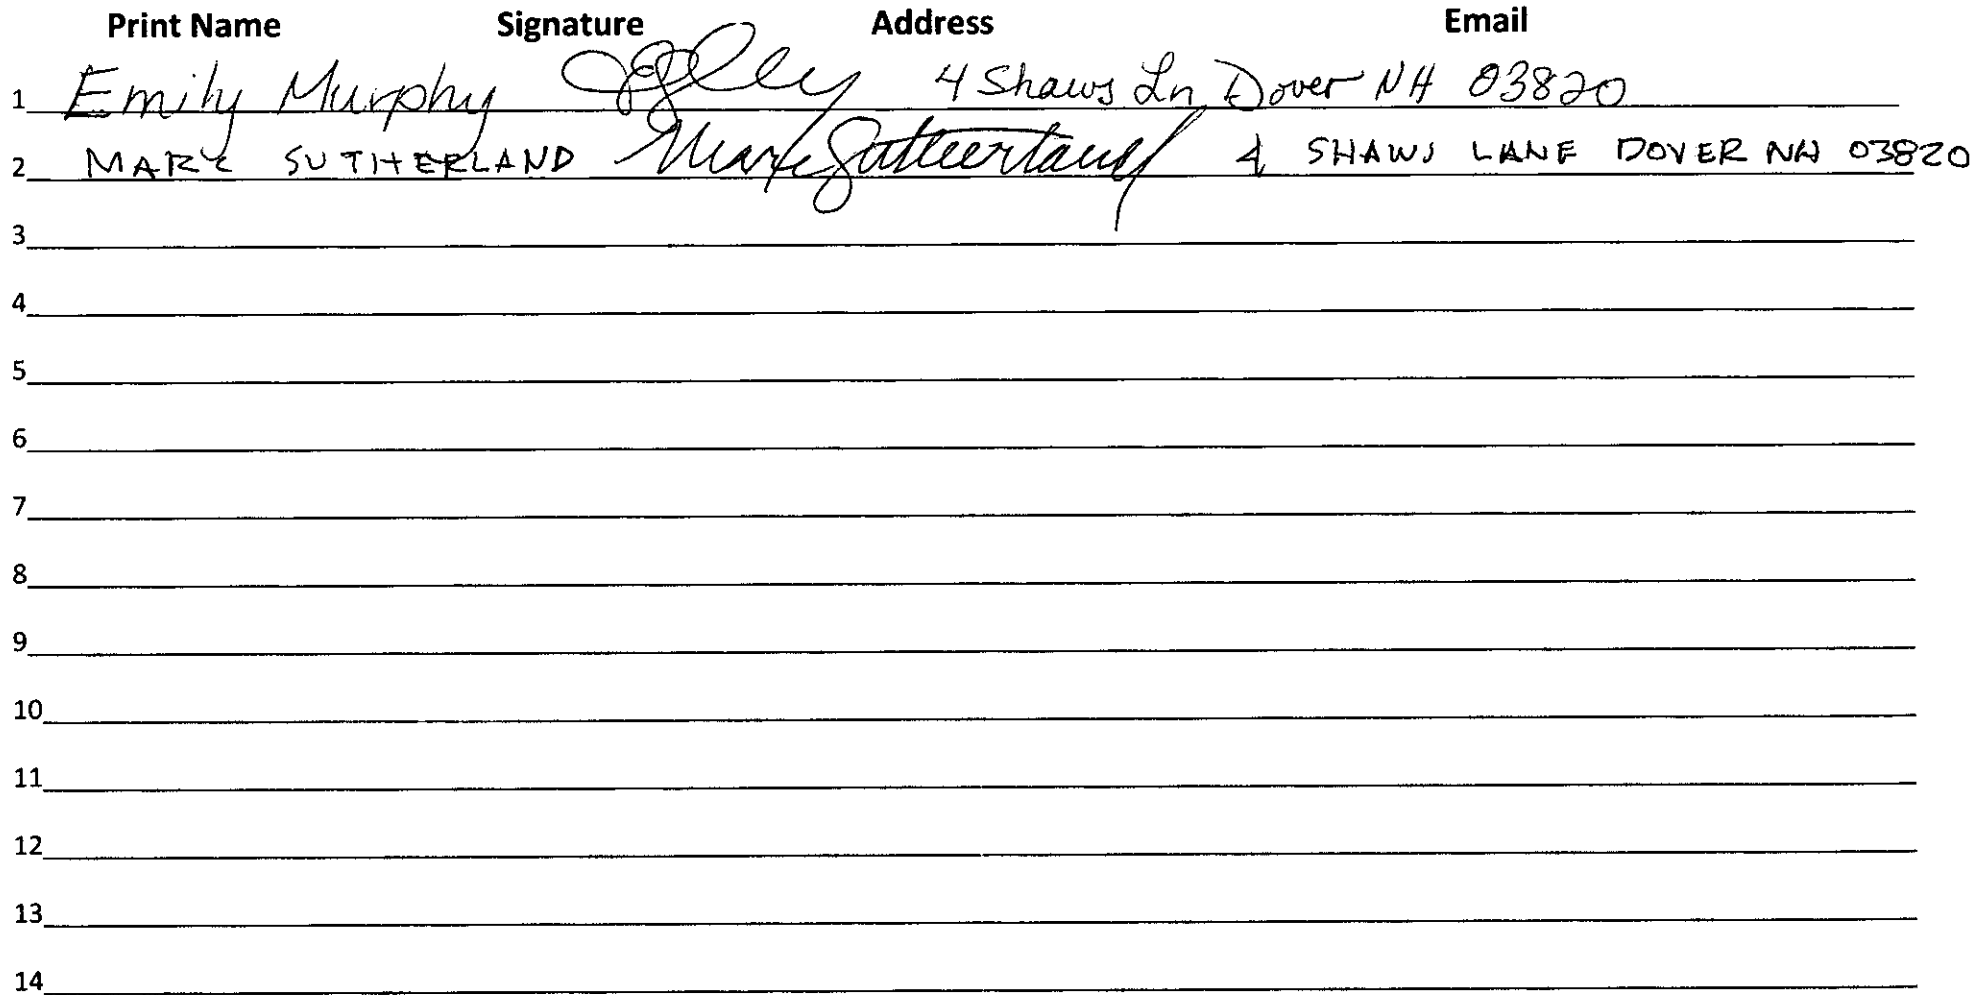 Print Name Signature Address Email
1 Emily Murphy 4 Shaws Ln Dover NH 03820
2 MARK SUTHERLAND Mark Sutherland 4 SHAWS LANE DOVER NH 03820
3
4
5
6
7
8
9
10
11
12
13
14